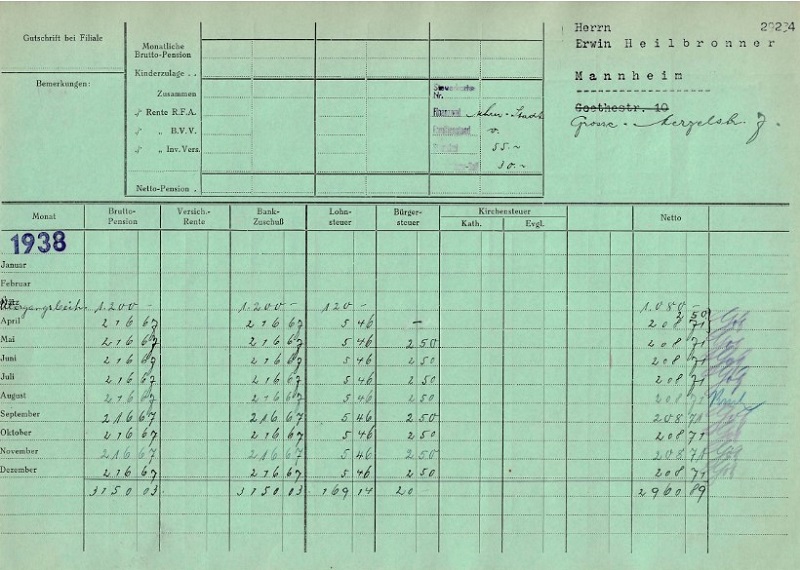 Gutschrift bei Filiale
Bemerkungen:
Monatliche
Brutto-Pension
Kinderzulage . .
Zusammen
./ Rente R.F.A.
./ „ B.V.V.
./ „ Inv.Vers.
Netto-Pension .
Nr.
v.
55.-
30.-
Herrn 29234
Erwin Heilbronner
Mannheim
Goethestr. 10
Grosse
Monat Brutto-Pension Versich.-Rente Bank-Zuschuß Lohn-steuer Bürger-steuer Kirchensteuer Kath. Evgl. Netto
1938
Januar
Februar
1.200 - 1.200 - 120 - 1.080 -
2 50
April 216 67 216 67 5 46 — 208 71
Mai 216 67 216 67 5 46 2 50 208 71
Juni 216 67 216 67 5 46 2 50 208 71
Juli 216 67 216 67 5 46 2 50 208 71
August 216 67 216 67 5 46 2 50 208 71
September 216 67 216 67 5 46 2 50 208 71
Oktober 216 67 216 67 5 46 2 50 208 71
November 216 67 216 67 5 46 2 50 208 71
Dezember 216 67 216 67 5 46 2 50 208 71
3150 03 3150 03 169 14 20 2960 89